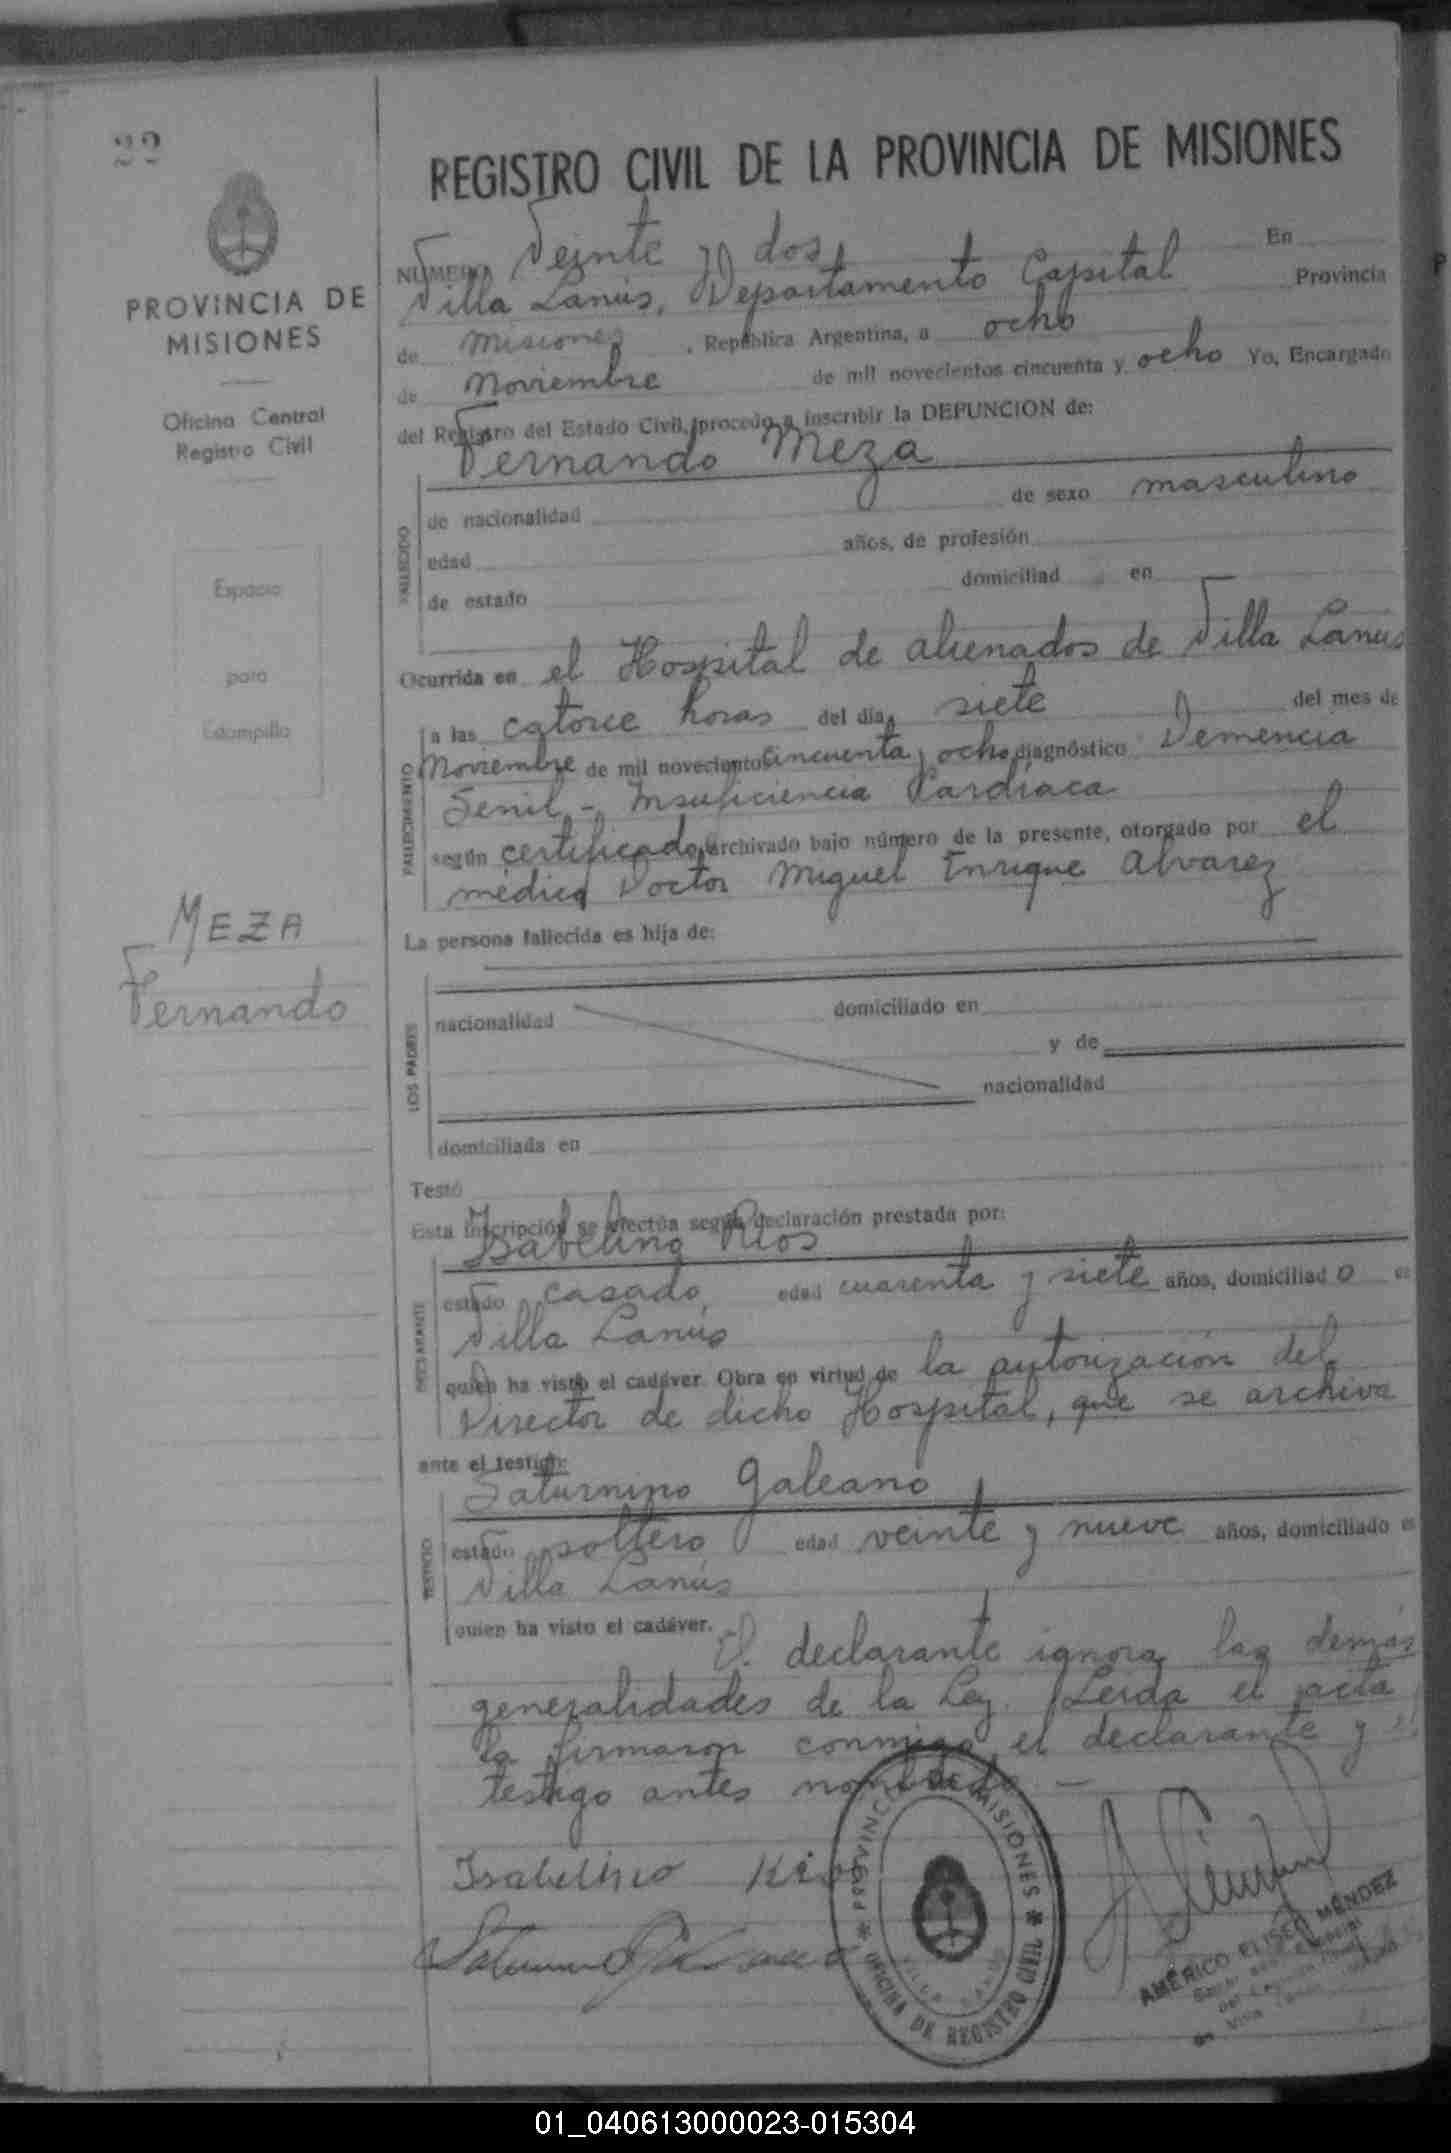 22
PROVINCIA DE
MISIONES
Oficina Central
Registro Civil
Espacio
para
Estampilla
MEZA
Fernando
REGISTRO CIVIL DE LA PROVINCIA DE MISIONES
NUMERO Veinte y dos En
Villa Lanús, Departamento Capital Provincia
de Misiones, República Argentina, a ocho
de Noviembre de mil novecientos cincuenta y ocho Yo, Encargado
del Registro del Estado Civil, procedo a inscribir la DEFUNCION de:
Fernando Meza
FALLECIDO
de nacionalidad de sexo masculino
edad años, de profesión
de estado domiciliad en
Ocurrida en el Hospital de alienados de Villa Lanús
FALLECIMIENTO
a las catorce horas del día siete del mes de
Noviembre de mil novecientos cincuenta y ocho diagnóstico Demencia
Senil - Insuficiencia Cardíaca
según certificado archivado bajo número de la presente, otorgado por el
médico Doctor Miguel Enrique Alvarez
La persona fallecida es hija de:
LOS PADRES
nacionalidad domiciliado en
y de
nacionalidad
domiciliada en
Testó
Esta inscripción se efectúa según declaración prestada por:
Isabelino Ríos
DECLARANTE
estado casado, edad cuarenta y siete años, domiciliado
Villa Lanús
quien ha visto el cadáver. Obra en virtud de la autorización del
Director de dicho Hospital, que se archiva
ante el testigo:
Saturnino Galeano
TESTIGO
estado soltero edad veinte y nueve años, domiciliado
Villa Lanús
quien ha visto el cadáver.- El declarante ignora las demás
generalidades de la Ley. Leída el acta
la firmaron conmigo, el declarante y el
testigo antes nombrado. —
Isabelino Rios
PROVINCIA DE MISIONES * OFICINA DE REGISTRO CIVIL *
VILLA LANUS
AMÉRICO ELISEO MÉNDEZ
01_040613000023-015304